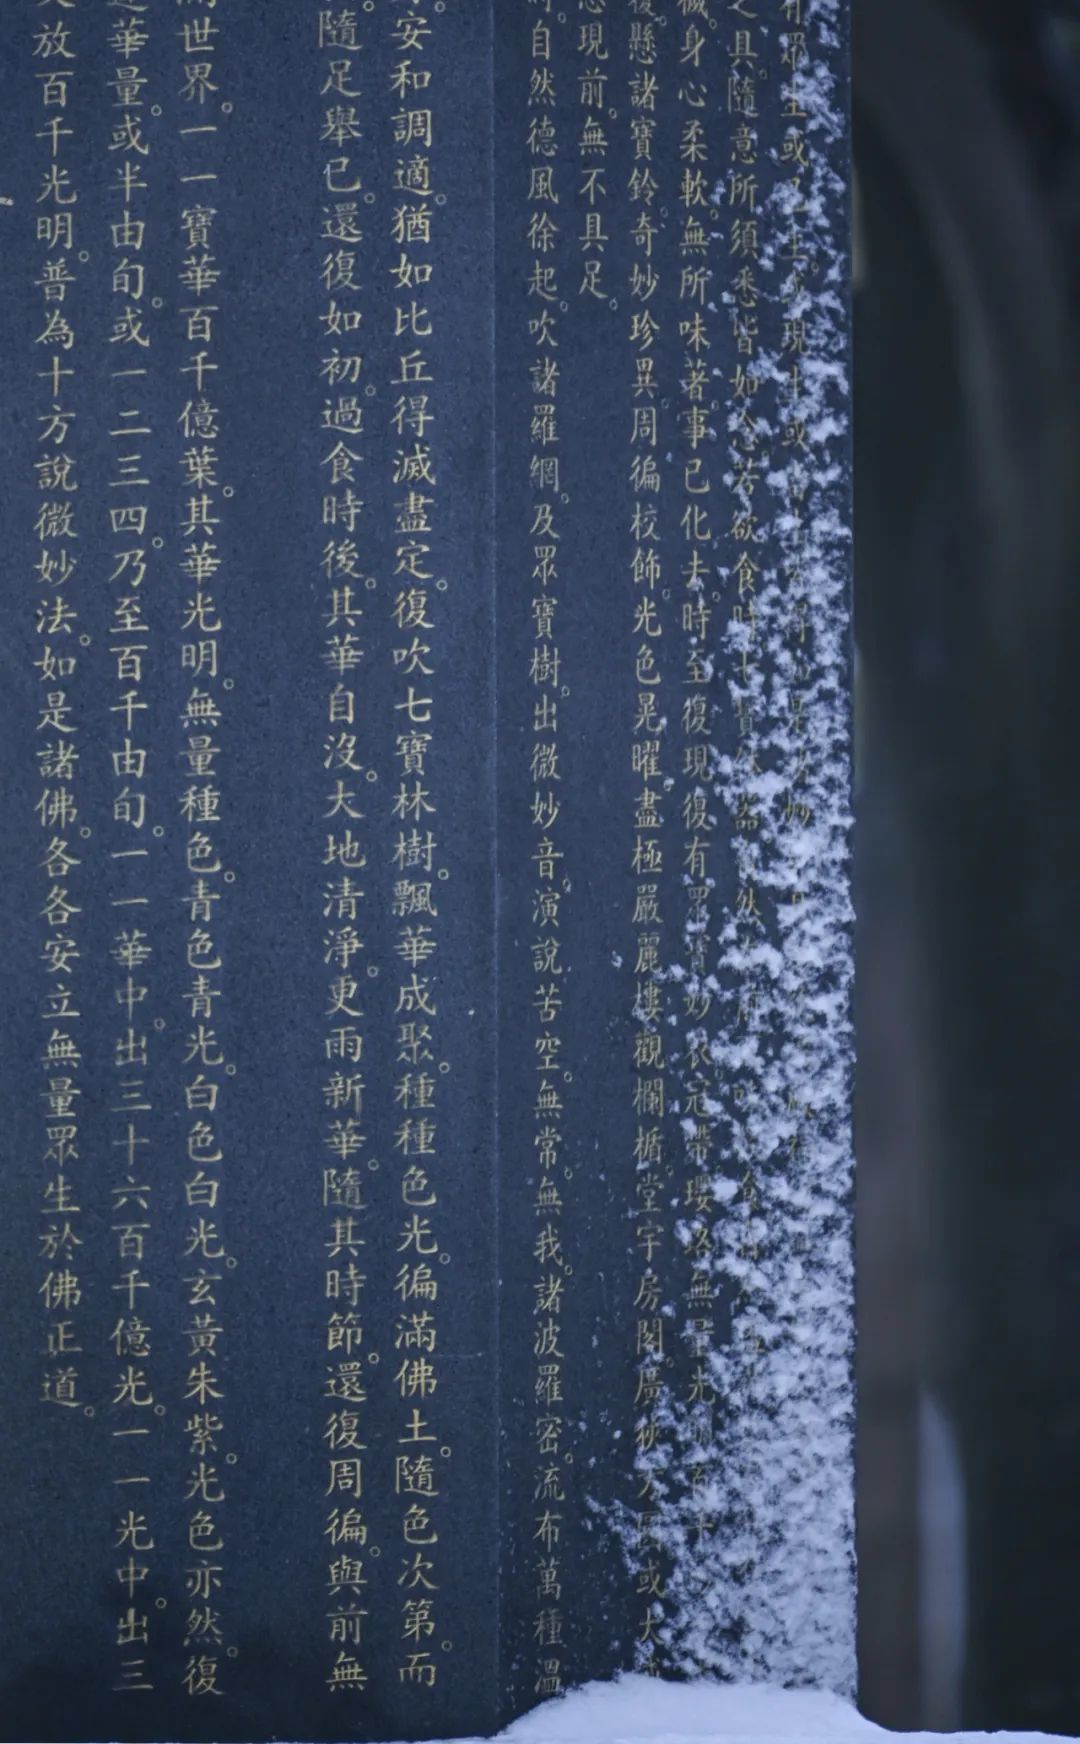 眾生或
之具。隨意所須悉皆如念。若欲食時
穢。身心柔軟。無所味著。事已化去。時至復現。復有眾寶妙衣。冠帶。瓔珞。無量光明。百千
復。懸諸寶鈴。奇妙珍異。周徧校飾。光色晃曜。盡極嚴麗。樓觀欄楯。堂宇房閣。廣狹方圓。或大
現前。無不具足。
時。自然德風徐起。吹諸羅網。及眾寶樹。出微妙音。演說苦空。無常。無我。諸波羅密。流布萬種溫
安和調適。猶如比丘得滅盡定。復吹七寶林樹。飄華成聚。種種色光。徧滿佛土。隨色次第。而
隨足舉已。還復如初。過食時後。其華自沒。大地清淨。更雨新華。隨其時節。還復周徧。與前無
世界。一一寶華百千億葉。其華光明。無量種色。青色青光。白色白光。玄黃朱紫。光色亦然。復
華量。或半由旬。或一二三四。乃至百千由旬。一一華中。出三十六百千億光。一一光中。出三
放百千光明。普為十方說微妙法。如是諸佛。各各安立無量眾生於佛正道。